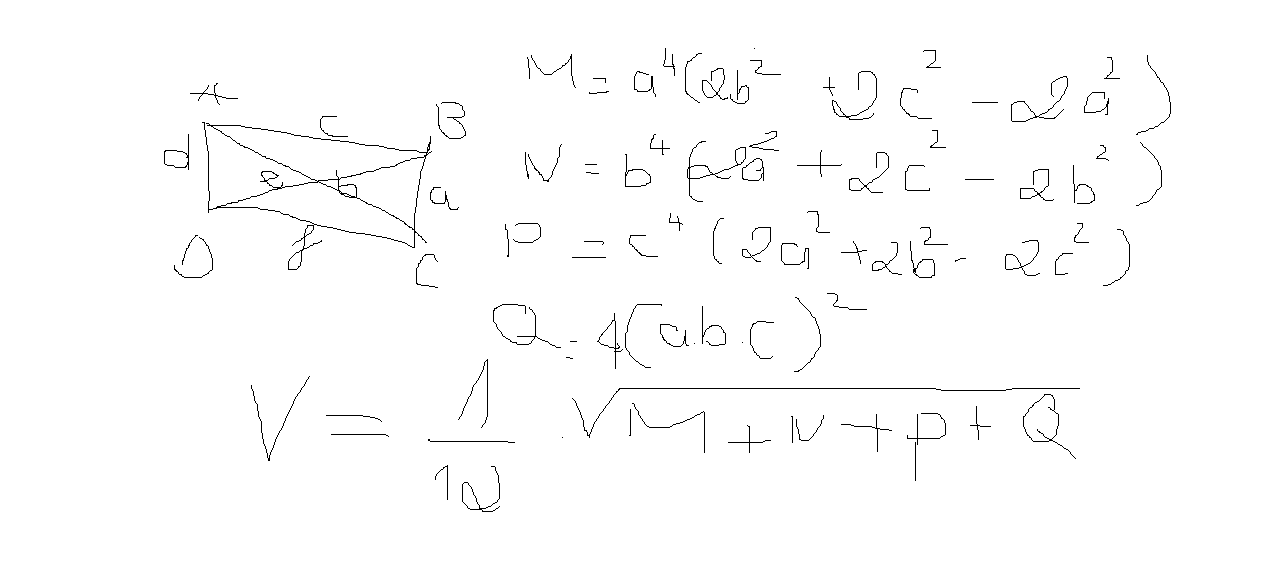 A
c
B
d
e
b
a
D
f
C
M = a⁴(2b² + 2c² - 2a²)
N = b⁴(2a² + 2c² - 2b²)
P = c⁴(2a² + 2b² - 2c²)
Q = 4(a.b.c)²
V = 1/12 . √(M + N + P + Q)